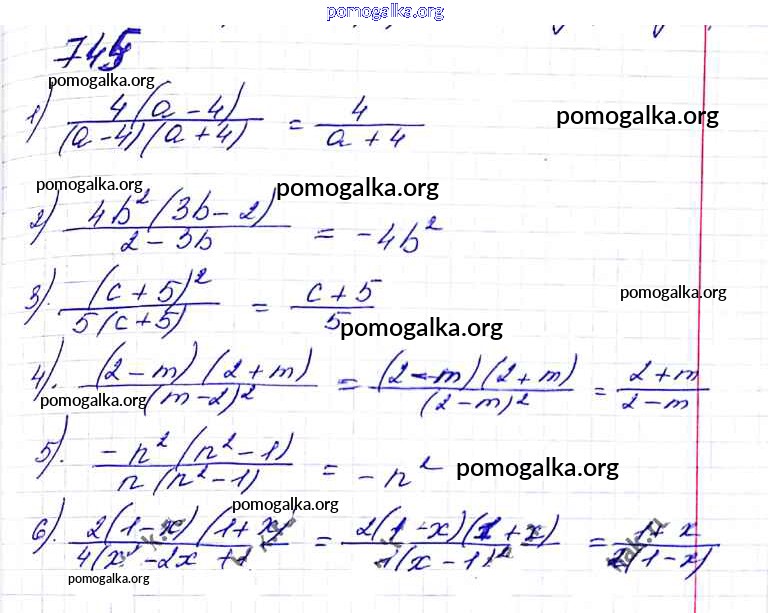 pomogalka.org
745
pomogalka.org
1) 4(a-4) / (a-4)(a+4) = 4 / a+4
pomogalka.org
pomogalka.org
pomogalka.org
2) 4b² (3b-2) / 2-3b = -4b²
3). (c+5)² / 5(c+5) = c+5 / 5
pomogalka.org
pomogalka.org
4). (2-m)(2+m) / (m-2)² = (2-m)(2+m) / (2-m)² = 2+m / 2-m
pomogalka.org
5). -n² (n²-1) / n(n²-1) = -n²
pomogalka.org
pomogalka.org
6). 2(1-x)(1+x) / 4(x²-2x+1 = 2(1-x)(1+x) / (x-1)² = 1+x / 2(1-x)
pomogalka.org